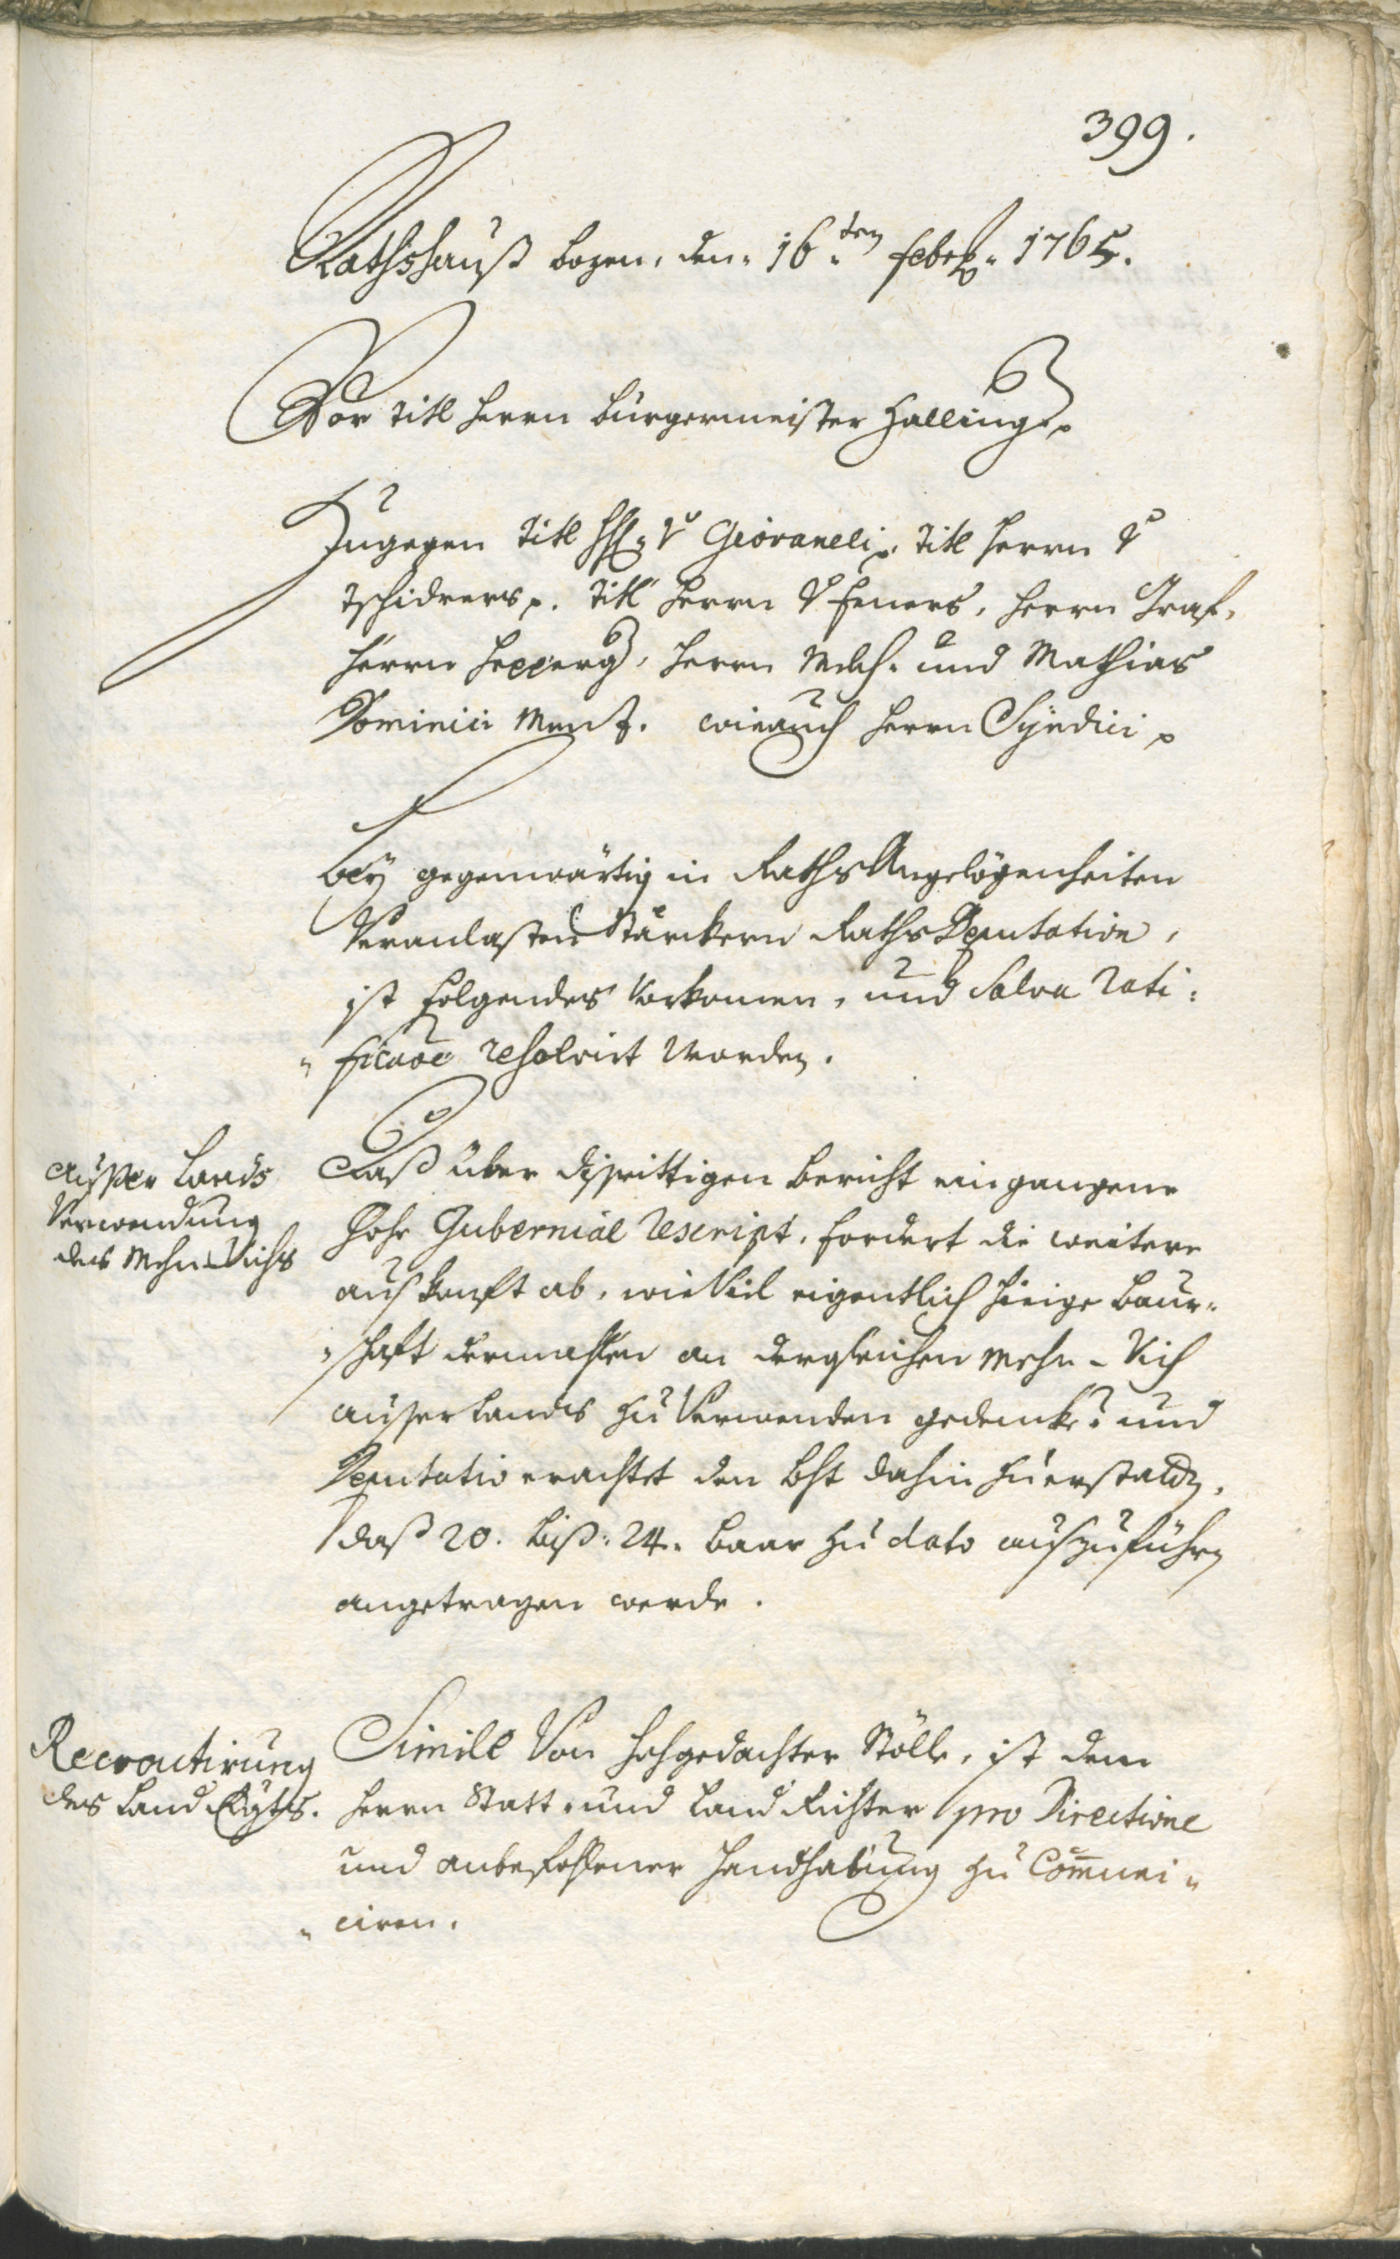 399.
Rathshauß bozen, den 16.ten febr. 1765.
Vor titl herrn burgermeister Hallinger
Zugegen titl hℓ: v Giovaneli, titl herrn v
tschidrers. titl herrn v feners, herrn Graf,
herrn hepperg, herrn Melch. und Mathias
Dominici Menz. wieauch herrn Syndici
bey gegenwärtig in Raths Angelögenheiten
Veranlasten Stärckern Raths Deputation,
ist folgendes Vorkomen, und Salva rati:
„ ficaōe resolvirt worden.
ausser Lands
Verwendung
des Mehn-Vichs
daß über disseittigen bericht eingangene
hohe Gubernial rescript, fordert die weitere
auskonft ab, wieviel eigentlich hieige baur„
„schaft dermahlen an dergleichen Mehn-Vich
ausser Lands zu Verwenden gedencke? und
Deputatio erachtet den bht dahin zu erstatten,
daß 20. biß: 24. baar zu dato auszuführen
angetragen werde.
Recroutirung
des Land Rgts.
Simile Von hohgedachter Stölle, ist dem
herrn Statt- und Land Richter pro Directione
und anbefohlener handhabung zu Com̄uni„
„ciren.